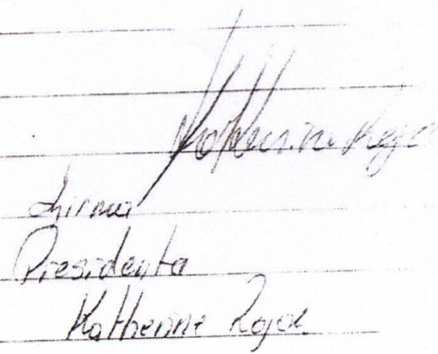 Katherine Rojas
Firma
Presidenta
Katherine Rojas